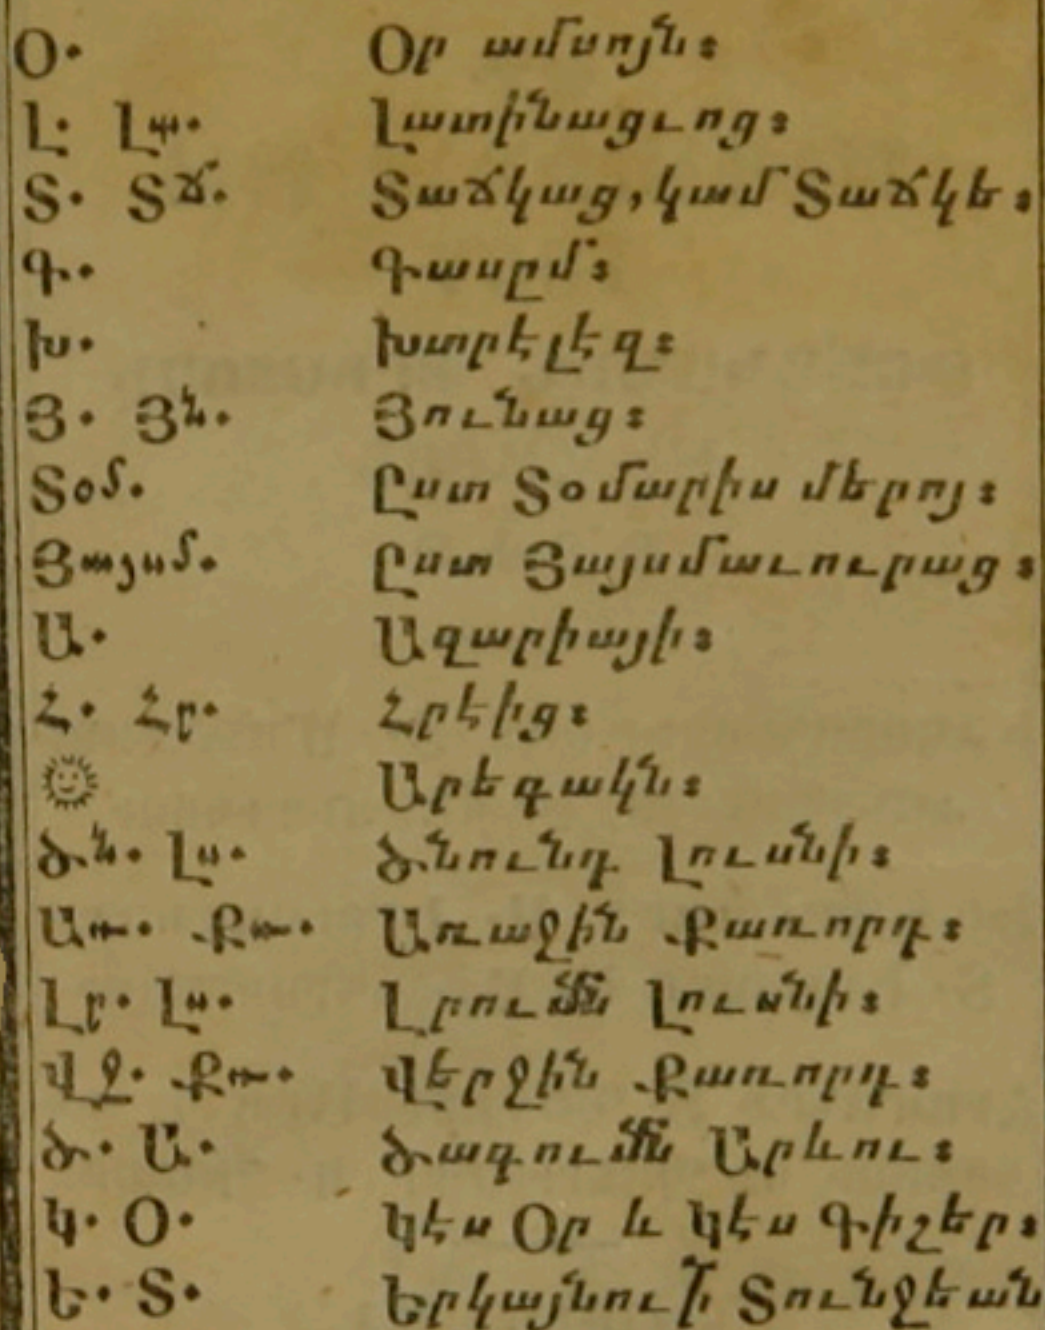 Օ. Օր ամսոյն։
Լ. Լտ. Լատինացւոց։
Տ. Տճ. Տաճկաց, կամ Տաճկե։
Գ. Գասըմ։
Խ. Խտրէլէզ։
Յ. Յն. Յունաց։
Տօմ. Ըստ Տօմարիս մերոյ։
Յայսմ. Ըստ Յայսմաւուրաց։
Ա. Ազարիայի։
Հ. Հր. Հրէից։
Արեգակն։
Ծն. Լս. Ծնունդ Լուսնի։
Առ. Քռ. Առաջին Քառորդ։
Լր. Լս. Լրումն Լուսնի։
Վջ. Քռ. Վերջին Քառորդ։
Ծ. Ա. Ծագումն Արևու։
Կ. Օ. Կէս Օր և Կէս Գիշեր։
Ե. Տ. Երկայնու՟ի Տունջեան